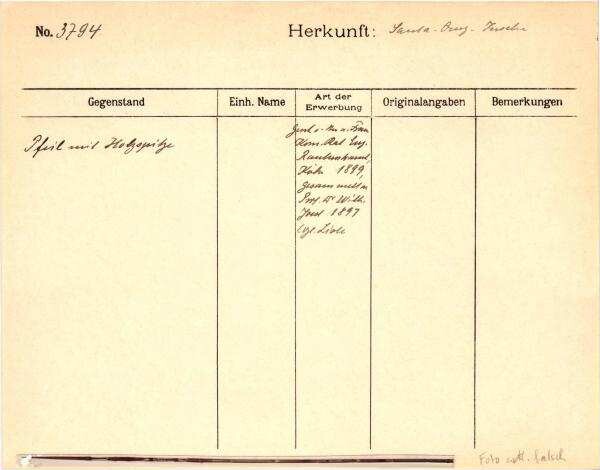 No. 3794
Herkunft: Santa-Cruz-Inseln
Gegenstand
Einh. Name
Art der
Erwerbung
Originalangaben
Bemerkungen
Pfeil mit Holzspitze
Gesch. v. u. Frau
Kom. Rat Eug.
Rautenstrauch,
Köln 1899,
gesammelt v.
Prof. Dr Wilh.
Joest 1897
vgl. Liste
Foto falsch